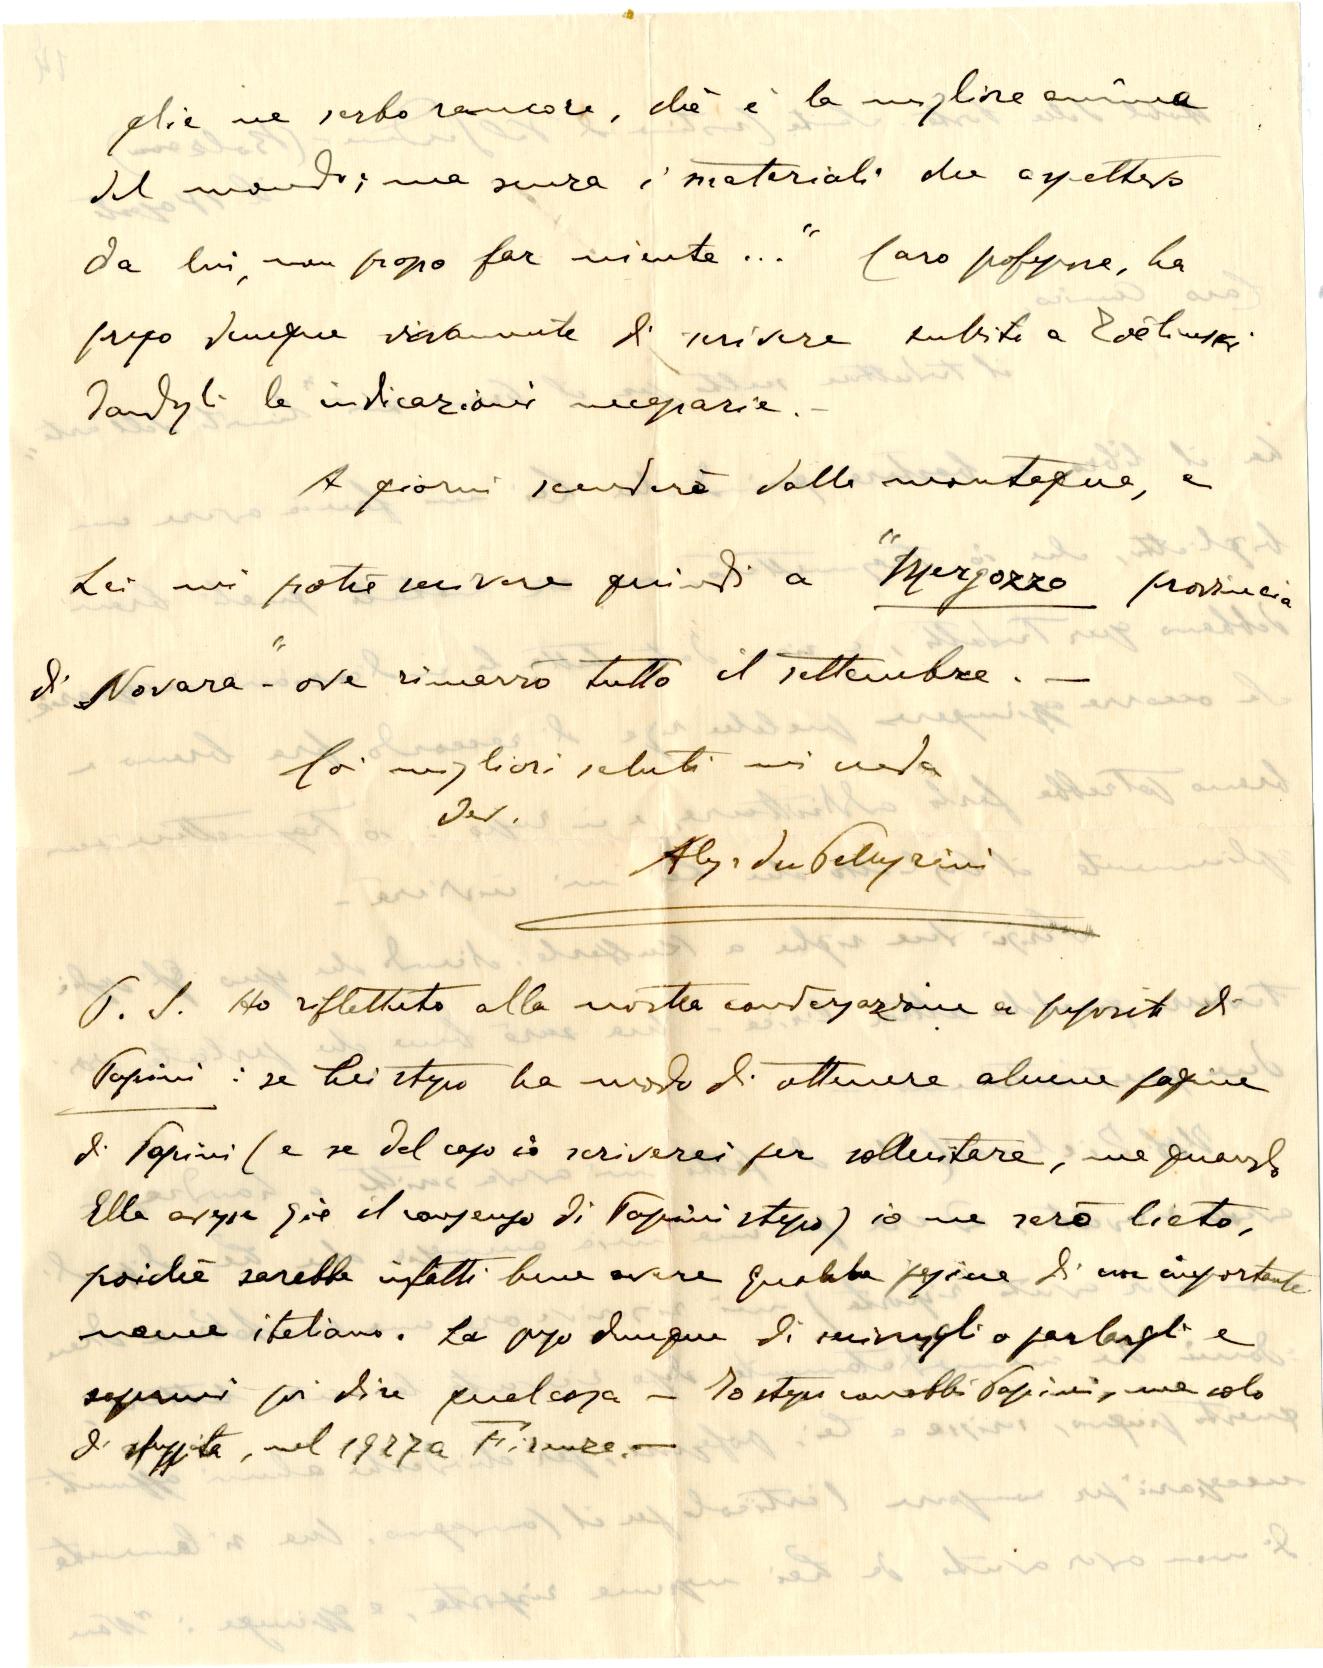 glie ne serbo rancore, chè è la migliore anima
del mondo; ma senza i materiali che aspettavo
da lui, non posso far niente..." Caro professore, La
prego dunque vivamente di scrivere subito a Zoëlinski
dandogli le indicazioni necessarie. -
A giorni scenderò dalla montagna, e
Lei mi potrà scrivere quindi a "Mergozzo provincia
di Novara" - ove rimarrò tutto il settembre. -
Coi migliori saluti mi creda
dev.
Alessandro Pellegrini
P. S. Ho riflettuto alla nostra conversazione a proposito di
Papini: se Lei stesso ha modo di ottenere alcune pagine
di Papini (e se del caso io scriverei per sollecitare, ma quando
Ella avesse già il consenso di Papini stesso) io ne sarò lieto,
poichè sarebbe infatti bene avere qualche pagina di un importante
nome italiano. La prego dunque di scrivergli o parlargli e
sapermi poi dire qualcosa - Io stesso conobbi Papini, ma solo
di sfuggita, nel 1927 a Firenze. -